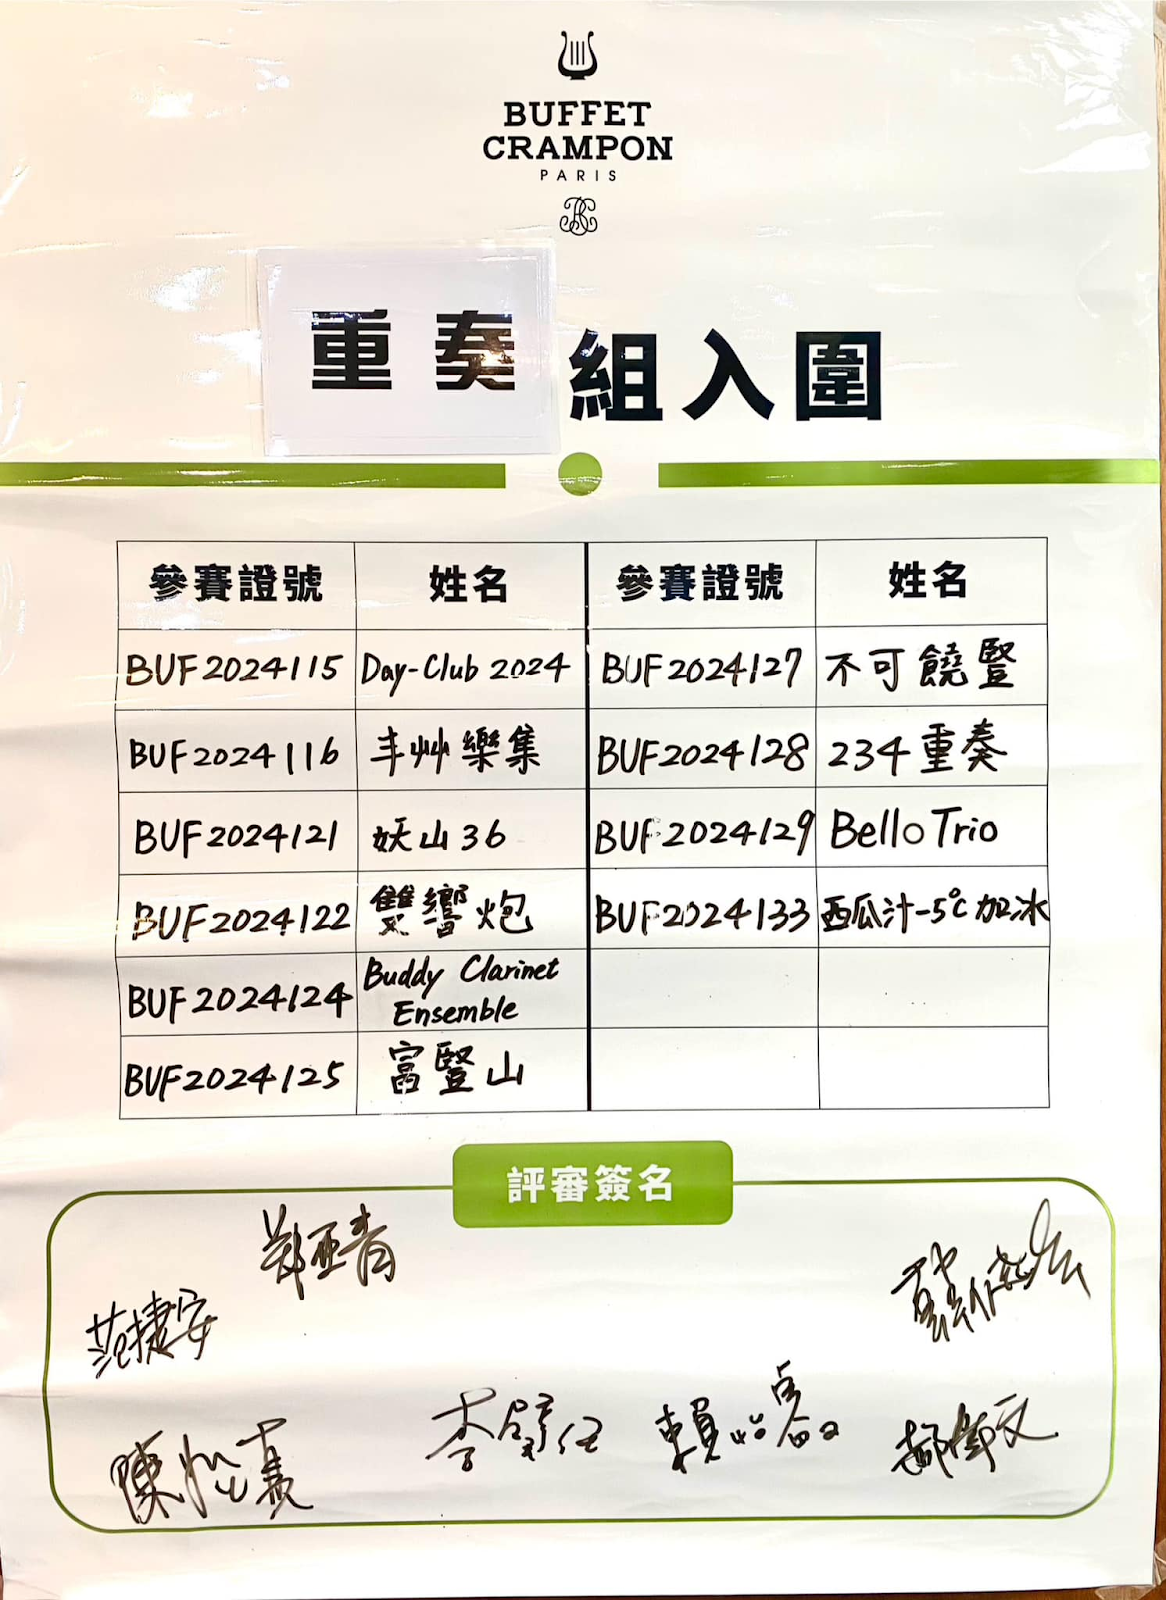 BUFFET
CRAMPON
PARIS
重奏組入圍
參賽證號 姓名 參賽證號 姓名
BUF2024115 Day-Club 2024 BUF2024127 不可饒豎
BUF2024116 丰艸樂集 BUF2024128 234重奏
BUF2024121 妖山36 BUF2024129 Bello Trio
BUF2024122 雙響炮 BUF2024133 西瓜汁-5℃加冰
BUF2024124 Buddy Clarinet
Ensemble
BUF2024125 富豎山
評審簽名
范捷安